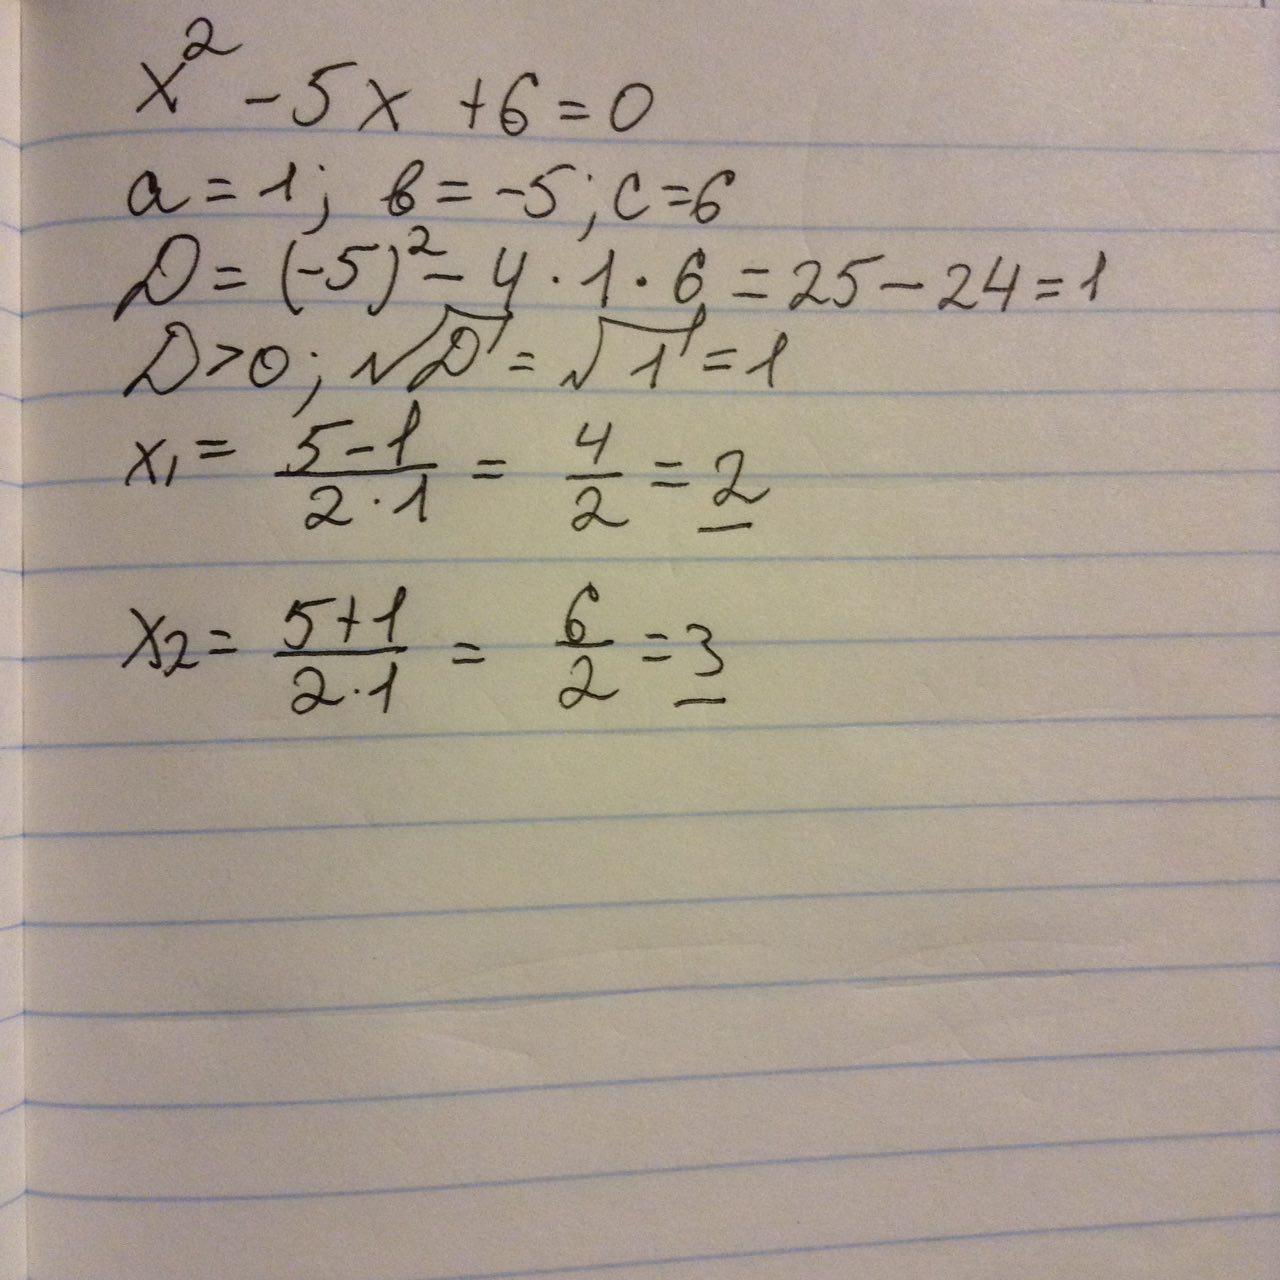 x² - 5x + 6 = 0
a = 1; в = -5; c = 6
D = (-5)² - 4 · 1 · 6 = 25 - 24 = 1
D > 0; √D = √1 = 1
x₁ = (5-1)/(2·1) = 4/2 = 2
x₂ = (5+1)/(2·1) = 6/2 = 3